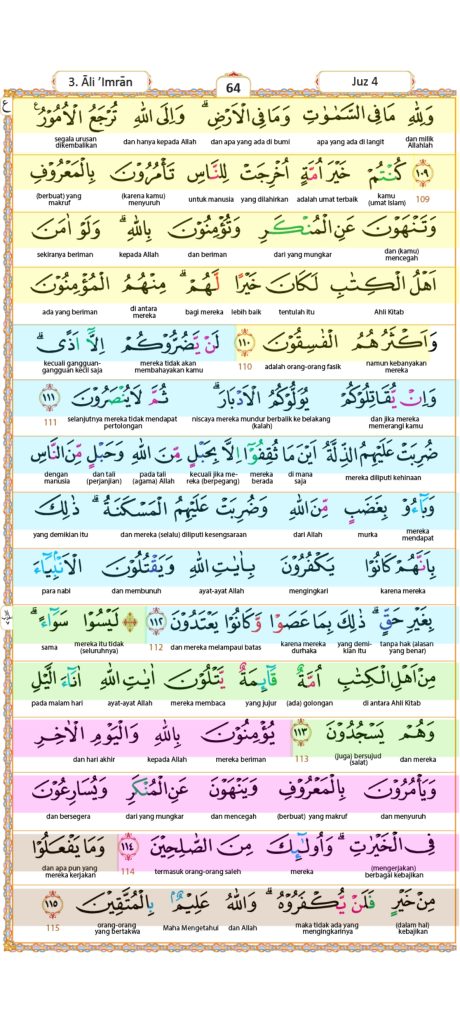 3. Āli 'Imrān
64
Juz 4
وَلِلّٰهِ مَا فِى السَّمٰوٰتِ وَمَا فِى الْاَرْضِۗ وَاِلَى اللّٰهِ تُرْجَعُ الْاُمُوْرُ ࣖ
dan milik Allahlah apa yang ada di langit dan apa yang ada di bumi dan hanya kepada Allah segala urusan dikembalikan
١٠٩ كُنْتُمْ خَيْرَ اُمَّةٍ اُخْرِجَتْ لِلنَّاسِ تَأْمُرُوْنَ بِالْمَعْرُوْفِ
109 kamu (umat Islam) adalah umat terbaik yang dilahirkan untuk manusia (karena kamu) menyuruh (berbuat) yang makruf
وَتَنْهَوْنَ عَنِ الْمُنْكَرِ وَتُؤْمِنُوْنَ بِاللّٰهِۗ وَلَوْ اٰمَنَ
dan (kamu) mencegah dari yang mungkar dan beriman kepada Allah sekiranya beriman
اَهْلُ الْكِتٰبِ لَكَانَ خَيْرًا لَّهُمْۗ مِنْهُمُ الْمُؤْمِنُوْنَ
Ahli Kitab tentulah itu lebih baik bagi mereka di antara mereka ada yang beriman
وَاَكْثَرُهُمُ الْفٰسِقُوْنَ ١١٠ لَنْ يَّضُرُّوْكُمْ اِلَّآ اَذًىۗ
namun kebanyakan mereka adalah orang-orang fasik 110 mereka tidak akan membahayakan kamu kecuali gangguan-gangguan kecil saja
وَاِنْ يُّقَاتِلُوْكُمْ يُوَلُّوْكُمُ الْاَدْبَارَۗ ثُمَّ لَا يُنْصَرُوْنَ ١١١
dan jika mereka memerangi kamu niscaya mereka mundur berbalik ke belakang (kalah) selanjutnya mereka tidak mendapat pertolongan 111
ضُرِبَتْ عَلَيْهِمُ الذِّلَّةُ اَيْنَ مَا ثُقِفُوْٓا اِلَّا بِحَبْلٍ مِّنَ اللّٰهِ وَحَبْلٍ مِّنَ النَّاسِ
mereka diliputi kehinaan di mana saja mereka berada kecuali jika mereka (berpegang) pada tali (agama) Allah dan tali (perjanjian) dengan manusia
وَبَاۤءُوْ بِغَضَبٍ مِّنَ اللّٰهِ وَضُرِبَتْ عَلَيْهِمُ الْمَسْكَنَةُۗ ذٰلِكَ
mereka mendapat murka dari Allah dan mereka (selalu) diliputi kesengsaraan yang demikian itu
بِاَنَّهُمْ كَانُوْا يَكْفُرُوْنَ بِاٰيٰتِ اللّٰهِ وَيَقْتُلُوْنَ الْاَنْبِيَاۤءَ
karena mereka mengingkari ayat-ayat Allah dan membunuh para nabi
بِغَيْرِ حَقٍّۗ ذٰلِكَ بِمَا عَصَوْا وَّكَانُوْا يَعْتَدُوْنَ ١١٢ ۞ لَيْسُوْا سَوَاۤءًۗ
tanpa hak (alasan yang benar) yang demikian itu karena mereka durhaka dan mereka melampaui batas 112 mereka itu tidak (seluruhnya) sama
مِنْ اَهْلِ الْكِتٰبِ اُمَّةٌ قَاۤىِٕمَةٌ يَّتْلُوْنَ اٰيٰتِ اللّٰهِ اٰنَاۤءَ الَّيْلِ
di antara Ahli Kitab (ada) golongan yang jujur mereka membaca ayat-ayat Allah pada malam hari
وَهُمْ يَسْجُدُوْنَ ١١٣ يُؤْمِنُوْنَ بِاللّٰهِ وَالْيَوْمِ الْاٰخِرِ
dan mereka (juga) bersujud (salat) 113 mereka beriman kepada Allah dan hari akhir
وَيَأْمُرُوْنَ بِالْمَعْرُوْفِ وَيَنْهَوْنَ عَنِ الْمُنْكَرِ وَيُسَارِعُوْنَ
dan menyuruh (berbuat) yang makruf dan mencegah dari yang mungkar dan bersegera
فِى الْخَيْرٰتِۗ وَاُولٰۤىِٕكَ مِنَ الصّٰلِحِيْنَ ١١٤ وَمَا يَفْعَلُوْا
(mengerjakan) berbagai kebajikan mereka termasuk orang-orang saleh 114 dan apa pun yang mereka kerjakan
مِنْ خَيْرٍ فَلَنْ يُّكْفَرُوْهُۗ وَاللّٰهُ عَلِيْمٌۢ بِالْمُتَّقِيْنَ ١١٥
(dalam hal) kebajikan maka tidak ada yang mengingkarinya dan Allah Maha Mengetahui orang-orang yang bertakwa 115